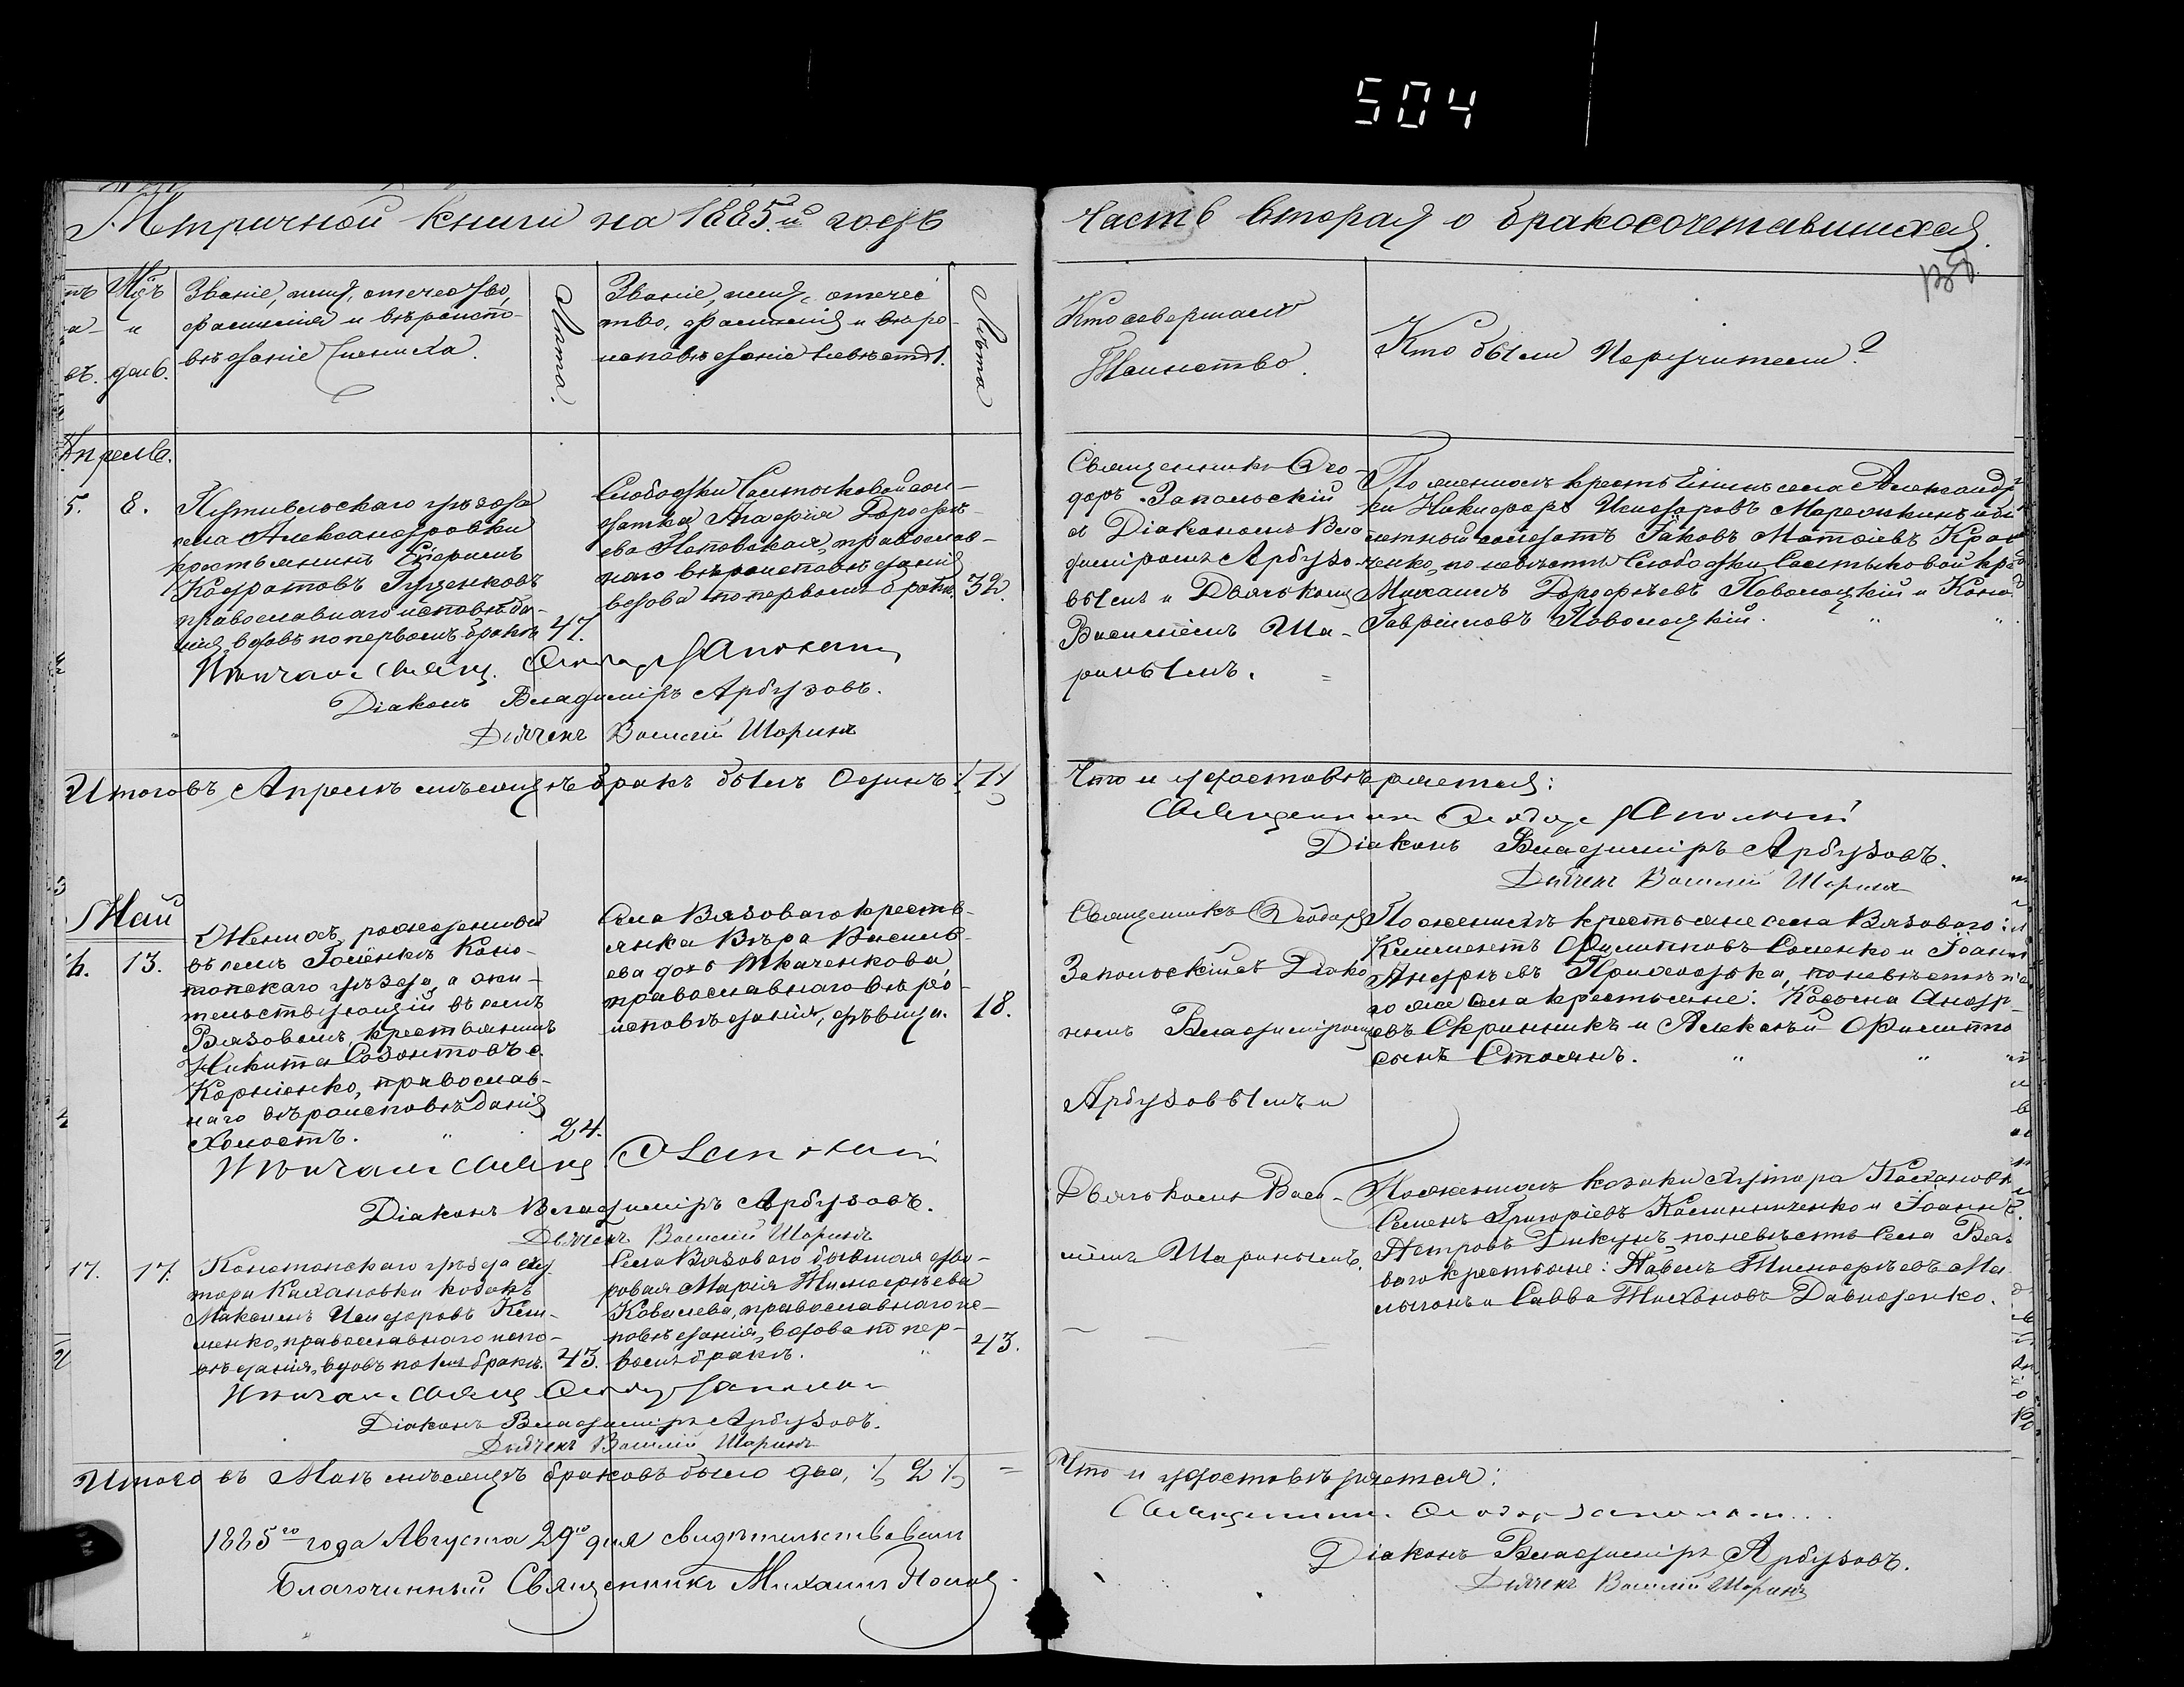 504
Метричной книги на 1885.й годъ
Часть вторая о бракосочетавшихся.
Мѣсъ и день.
Званіе, имя, отечество,
фамилія и вѣроиспо-
вѣданіе жениха.
Лѣта.
Званіе, имя, отечес
тво, фамилія и вѣро-
исповѣданіе невѣсты.
Лѣта
Кто совершалъ
Таинство.
Кто были Поручители?
Апрель.
5. 8. Путивльскаго уѣзда
села Александровки
крестьянинъ
Кодратовъ Гуценковъ
православнаго исповѣда-
нія, вдовъ по первомъ бракѣ 47.
Слободки сол-
датка Агафія Дорофѣ-
ева православ-
наго вѣроисповѣданія
вдова по первомъ бракѣ. 32.
Священникъ Ѳео-
доръ Запольскій
съ Діакономъ Вла
диміромъ Арбузо-
вымъ и Дьячкомъ
Василіемъ Ша-
ринымъ.
По женихѣ крестьянинъ села Александров
ки Никифоръ Исидоровъ и би
летный солдатъ Іаковъ Матѳіевъ Крав
ченко, по невѣстѣ Слободки кре
Михаилъ Дорофѣевъ Поволоцкій и
Гавріиловъ Поволоцкій.
Вѣнчалъ Свящ. Ѳеодоръ Запольскій
Діаконъ Владиміръ Арбузовъ.
Дьячекъ Василій Шаринъ
Итого въ Апрелѣ мѣсяцѣ бракъ былъ Одинъ /1/
Что и удостовѣряется:
Священникъ Ѳеодоръ Запольскій
Діаконъ Владиміръ Арбузовъ.
Дьячекъ Василій Шаринъ
Май
16. 13. Женихъ, рожденный
въ селѣ Голёнкѣ Коно-
топскаго уѣзда, а жи-
тельствующій въ селѣ
Вязовомъ, крестьянинъ
Никита Созонтовъ с.
Корніенко, православ-
наго вѣроисповѣданія
холостъ. 24.
Села Вязоваго кресть-
янка Вѣра Василь-
ева дочь Ткаченкова
православнаго вѣро-
исповѣданія, дѣвица. 18.
Священникъ Ѳеодоръ
Запольскій съ Діако
номъ Владиміромъ
Арбузовымъ и
Дьячкомъ Васи-
ліемъ Шаринымъ.
По женихѣ крестьяне села Вязоваго:
Климентъ Филипповъ Сененко и Іоаннъ
Андрѣевъ Приходька, по невѣстѣ
го же села крестьяне: Косьма Андр-
евъ Скринникъ и Алексѣй Филиппо
сынъ Стоянъ.
Вѣнчалъ Священ. Запольскій
Діаконъ Владиміръ Арбузовъ.
Дьячекъ Василій Шаринъ
17. 17. Конотопскаго уѣзда ху
тора Кахановки козакъ
Максимъ Исидоровъ Кли-
менко, православнаго испо-
вѣданія, вдовъ по 1мъ бракѣ. 43.
Села Вязоваго бывшая дво-
ровая Марія Тимофѣева
Ковалева, православнаго ис-
повѣданія, вдова по пер-
вомъ бракѣ. 43.
По женихѣ козаки хутора Кахановки
Семенъ Григоріевъ Калиниченко и Іоаннъ
Петровъ Дикунъ, по невѣстѣ Села Вязо
ваго крестьяне: Павелъ Тимофѣевъ Ма
и Савва Тихоновъ Давиденко.
Вѣнчалъ Священ. Ѳеодоръ Запольскій
Діаконъ Владиміръ Арбузовъ.
Дьячекъ Василій Шаринъ
Итого въ Маѣ мѣсяцѣ браковъ было два, /2/
Что и удостовѣряется:
Священникъ Ѳеодоръ Запольскій
Діаконъ Владиміръ Арбузовъ.
Дьячекъ Василій Шаринъ
1885го года Августа 29го дня свидѣтельствовалъ
Благочинный Священникъ Михаилъ Попов